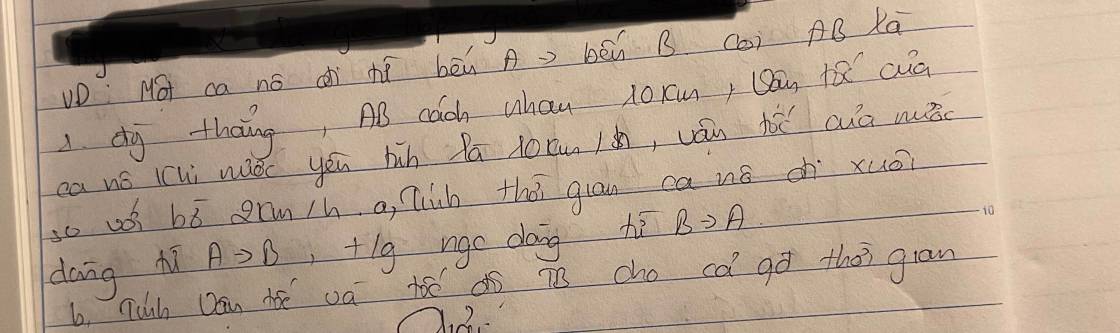 VD: Một ca nô đi từ bến A → bến B. Coi AB là
1 đg thẳng, AB cách nhau 10km, Vận tốc của
ca nô khi nước yên tĩnh là 10km/h, vận tốc của nước
so với bờ 2km/h. a, Tính thời gian ca nô đi xuôi
dòng từ A → B, + tg ngc dòng từ B → A.
b, Tính Vận tốc và tốc độ TB cho cả qđ thời gian
Giải: